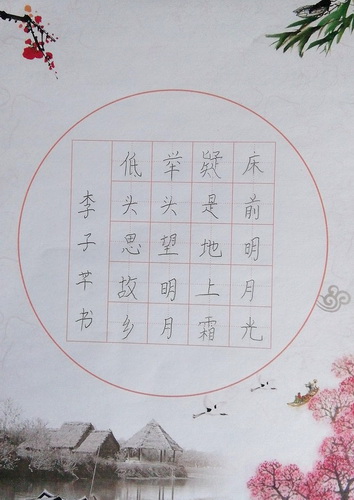 床前明月光
疑是地上霜
举头望明月
低头思故乡
李子芊书